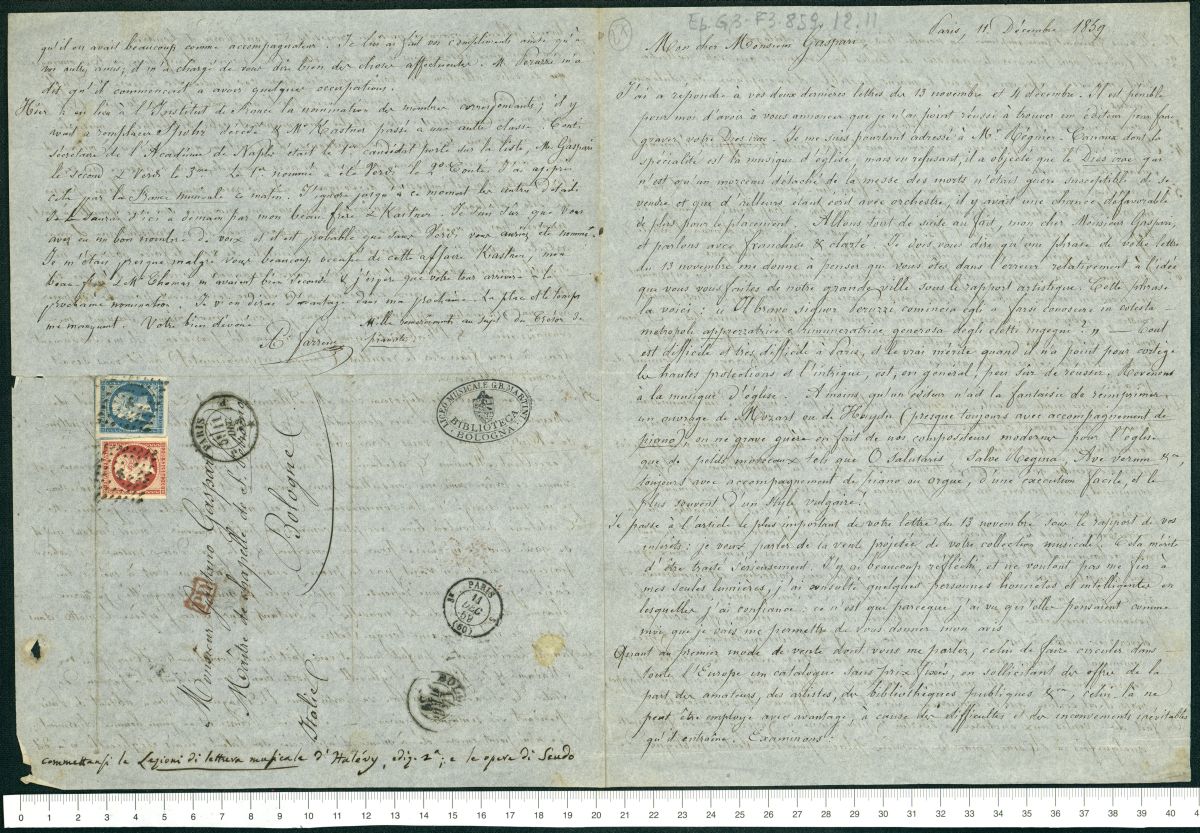 Ep. G3-F3.859.12.11
Paris, 11 Décembre 1859
Mon cher Monsieur Gaspari
J'ai a repondre à vos deux dernières lettres des 13 novembre et 4 décembre. Il est pénible
pour moi d'avoir à vous annoncer que je n'ai point réussi à trouver un éditeur pour faire
graver votre Dies irae. Je me suis pourtant adressé à Mr Régnier-Canaux dont la
spécialité est la musique d'église, mais en refusant, il a objecté que le Dies irae qui
n'est qu'un morceau détaché de la messe des morts n'était guère susceptible de se
vendre et que d'ailleurs étant écrit avec orchestre, il y avait une chance défavorable
de plus pour le placement. Allons tout de suite au fait, mon cher Monsieur Gaspari,
et parlons avec franchise & clarté. Je dois vous dire qu'une phrase de votre lettre
du 13 novembre me donne à penser que vous êtes dans l'erreur relativement à l'idée
que vous vous faites de notre grande ville sous le rapport artistique. Cette phrase
la voici: " Il bravo signor Peruzzi comincia egli a farsi conoscere in cotesta
metropoli apprezzatrice e rimuneratrice generosa degli eletti ingegni? " — Tout
est difficile et très difficile à Paris, et le vrai mérite quand il n'a point pour cortège
les hautes protections et l'intrigue, est, en général, peu sûr de réussir. Revenons
à la musique d'église. A moins qu'un éditeur n'ait la fantaisie de réimprimer
un ouvrage de Mozart ou de Haydn (presque toujours avec accompagnement de
piano), on ne grave guère en fait de nos compositeurs modernes pour l'église
que de petits morceaux tels que O salutaris, Salve Regina, Ave verum &a,
toujours avec accompagnement de piano ou orgue, d'une exécution facile, et le
plus souvent d'un style vulgaire!
Je passe à l'article le plus important de votre lettre du 13 novembre sous le rapport de vos
intérêts: je veux parler de la vente projetée de votre collection musicale. Cela mérite
d'être traité sérieusement. J'y ai beaucoup réfléchi, et ne voulant pas me fier à
mes seules lumières, j'ai consulté quelques personnes honnêtes et intelligentes en
lesquelles j'ai confiance: ce n'est que parceque j'ai vu qu'elles pensaient comme
moi que je vais me permettre de vous donner mon avis.
Quant au premier mode de vente dont vous me parlez, celui de faire circuler dans
toute l'Europe un catalogue sans prix fixés, en sollicitant des offres de la
part des amateurs, des artistes, des bibliothèques publiques &a, celui-là ne
peut être employé avec avantage, à cause des difficultés et des inconvénients inévitables
qu'il entraîne. Examinons.
qu'il en avait beaucoup comme accompagnateur. Je lui ai fait vos compliments ainsi qu'à
vos autres amis; il m'a chargé de vous dire bien des choses affectueuses. M. Peruzzi m'a
dit qu'il commençait à avoir quelques occupations.
Hier a eu lieu à l'Institut de France la nomination des membres correspondants; il y
avait à remplacer Spohr décédé & Mr Kastner passé à une autre classe. Conti,
secrétaire de l'Académie de Naples était le 1er candidat porté sur la liste, Mr Gaspari
le second & Verdi le 3me. Le 1er nommé a été Verdi, le 2d Conti. J'ai appris
cela par la France musicale ce matin. J'ignore jusqu'à ce moment les autres détails.
Je le saurai d'ici à demain par mon beau frère & Kastner. Je suis sûr que vous
avez eu un bon nombre de voix et il est probable que sans Verdi vous auriez été nommé.
Je m'étais presque malgré vous beaucoup occupé de cette affaire. Kastner, mon
beau frère & Mr Thomas m'avaient bien secondé & j'espère que votre tour arrivera à la
prochaine nomination. Je vous en dirai d'avantage dans ma prochaine. La place et le temps
me manquent. Votre bien dévoué
A. Farrenc
Mille remerciments au sujet du
MUSEO MUSICALE G.B. MARTINI
BIBLIOTECA
BOLOGNA
PARIS
11
DEC
59
(60)
PD
Monsieur Gaetano Gaspari
Maître de chapelle de St. Pétrone
Bologne
Italie
commettansi le Lezioni di lettura musicale d'Halévy, ediz. 2a; e le opere di Scudo
0 1 2 3 4 5 6 7 8 9 10 11 12 13 14 15 16 17 18 19 20 21 22 23 24 25 26 27 28 29 30 31 32 33 34 35 36 37 38 39 40